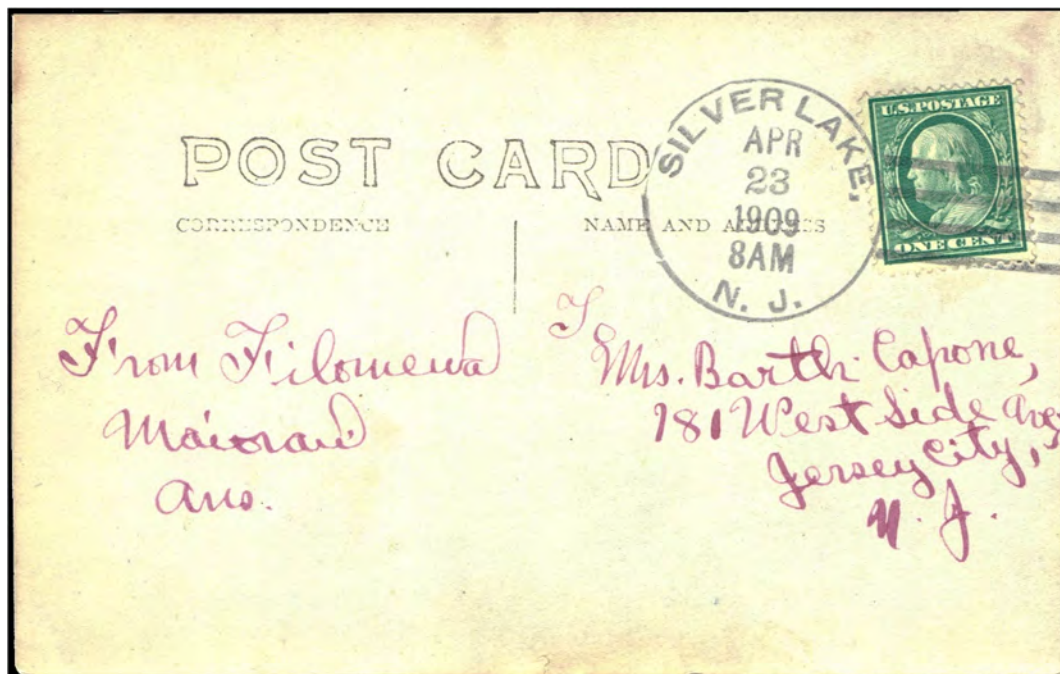 POST CARD
CORRESPONDENCE
NAME AND ADDRESS
SILVER LAKE,
APR
23
1909
8AM
N. J.
U.S. POSTAGE
ONE CENT
From Filomena
Ans.
Mrs. Barth. Capone,
181 West Side Ave,
Jersey City,
N. J.